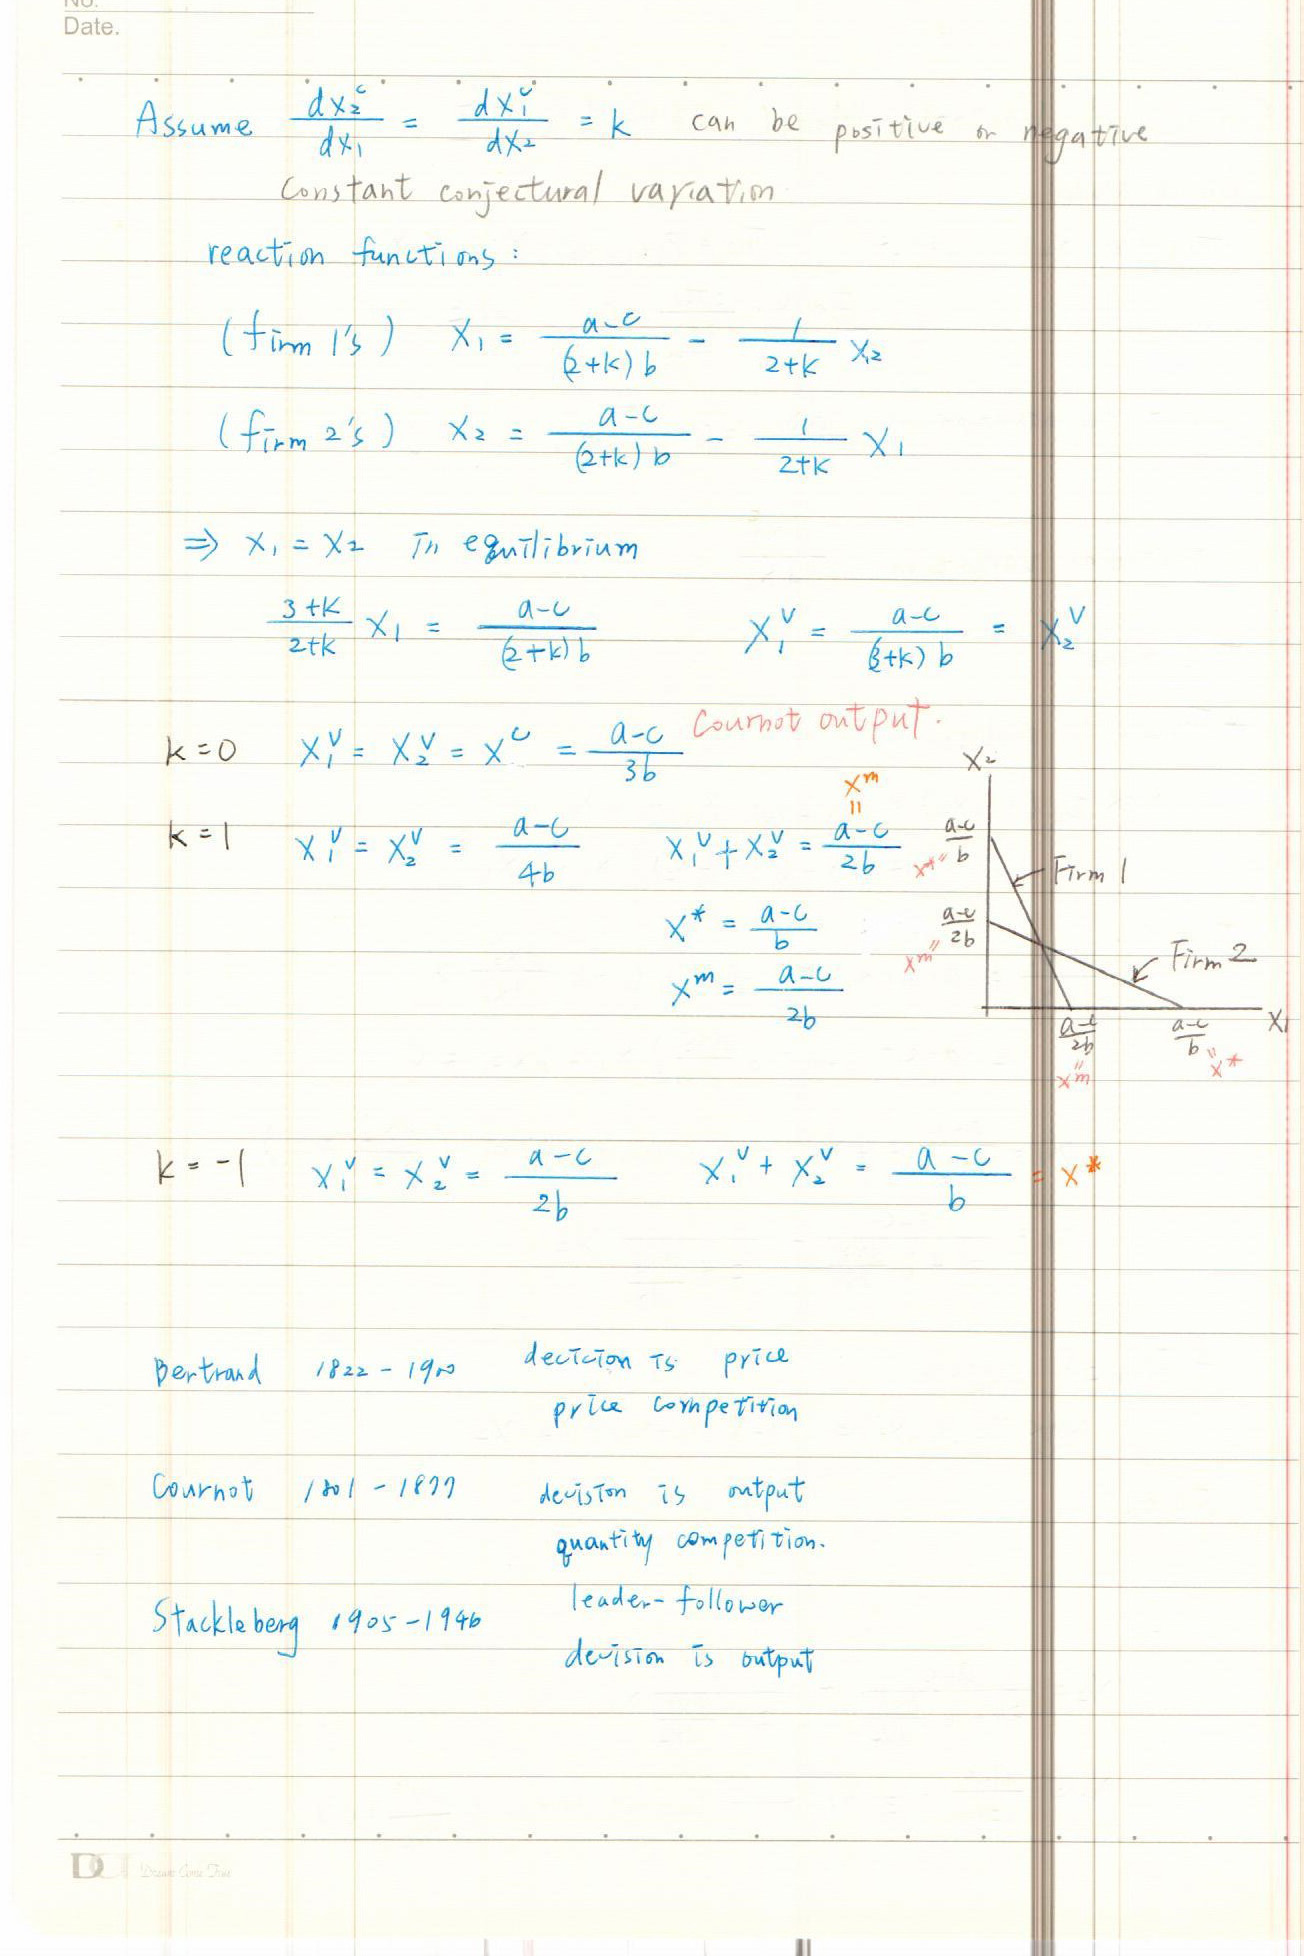 No.
Date.
Assume dx₂ᶜ/dx₁ = dx₁ᶜ/dx₂ = k can be positive or negative
Constant conjectural variation
reaction functions:
(firm 1's) X₁ = a-c/(2+k)b - 1/2+k X₂
(firm 2's) X₂ = a-c/(2+k)b - 1/2+k X₁
⇒ X₁ = X₂ in equilibrium
3+k/2+k X₁ = a-c/(2+k)b X₁ⱽ = a-c/(3+k)b = X₂ⱽ
k=0 X₁ⱽ = X₂ⱽ = Xᶜ = a-c/3b Cournot output.
Xᵐ
=
k=1 X₁ⱽ = X₂ⱽ = a-c/4b X₁ⱽ + X₂ⱽ = a-c/2b
X* = a-c/b
Xᵐ = a-c/2b
X₂
a-c/b
X* "
Firm 1
a-c/2b
Xᵐ "
Firm 2
X₁
a-c/2b
" Xᵐ
a-c/b
" X*
k=-1 X₁ⱽ = X₂ⱽ = a-c/2b X₁ⱽ + X₂ⱽ = a-c/b = X*
Bertrand 1822-1900 decicion is price
price competition
Cournot 1801-1877 decision is output
quantity competition.
Stackleberg 1905-1946 leader-follower
decision is output
Dream Come True